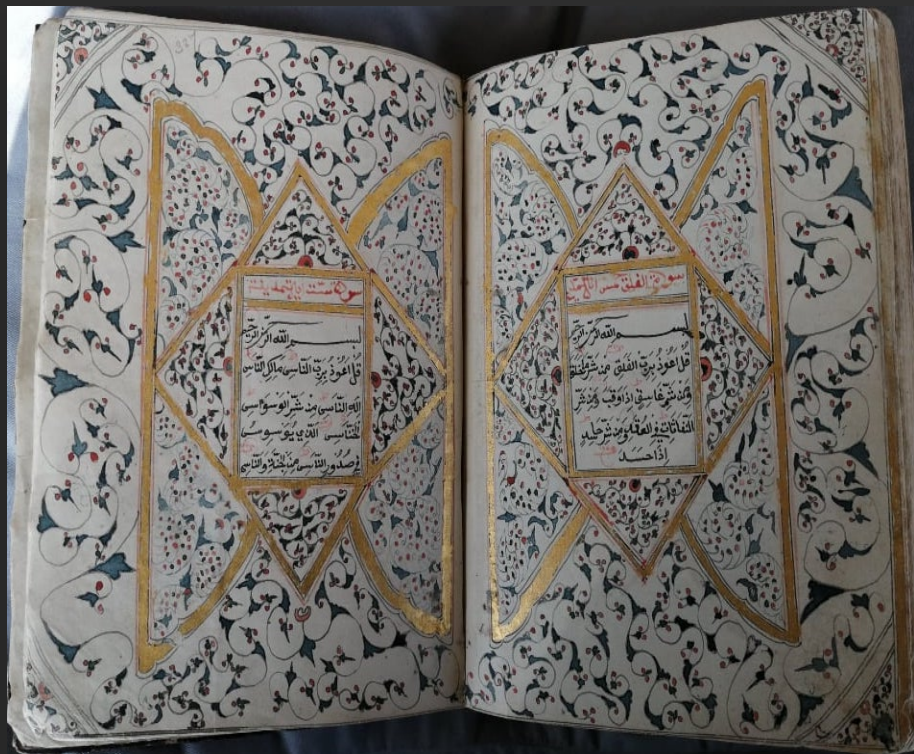 سورة الفلق
بسم الله الرحمن الرحيم
قُل اعُوذ بِرَبِّ الفَلَقِ مِن شَرِّ مَا خَلَقَ
وَمِن شَرِّ غَاسِقٍ اِذَا وَقَبَ وَمِن شَرِّ
النَّفَّاثَاتِ فِي العُقَدِ وَمِن شَرِّ حَاسِدٍ
اِذَا حَسَدَ
سورة
بسم الله الرحمن الرحيم
قُل اعُوذُ بِرَبِّ النَّاسِ مَالِكِ النَّاسِ
اِلهِ النَّاسِ مِن شَرِّ الوَسوَاسِ
الخَنَّاسِ الَّذِي يُوَسوِسُ
فِي صُدُورِ النَّاسِ مِنَ الجِنَّةِ وَالنَّاسِ